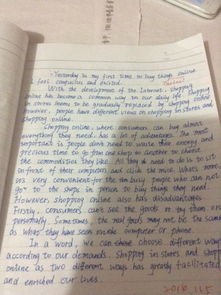 Yesterday is my first time to buy things online.
I feel compulsive and excited.
With the development of the Internet, shopping
online has become a common way in our daily life. Shopping
in stores seems to be gradually replaced by shopping online.
However, people have different views on shopping in stores and
shopping online.
Shopping online, where consumers can buy almost
everything they need, has a lot of advantages. The most
important is people don't need to waste their energy and
precious time to go from one shop to another to choose
the commodities they like. All they need to do is to sit
in front of their computers and click the mouse. What's more,
it's very convenient for the busy people who can not
go to the shops in person to buy things they need.
However, shopping online also has disadvantages.
Firstly, consumers can't see the goods or try them on
personally. Sometimes, the real goods may not be the same
as what they have seen on computer or phone.
In a word, we can choose different ways
according to our demands. Shopping in stores and shopping
online as two different ways has greatly facilitated
and enriched our lives.
2016.11.5